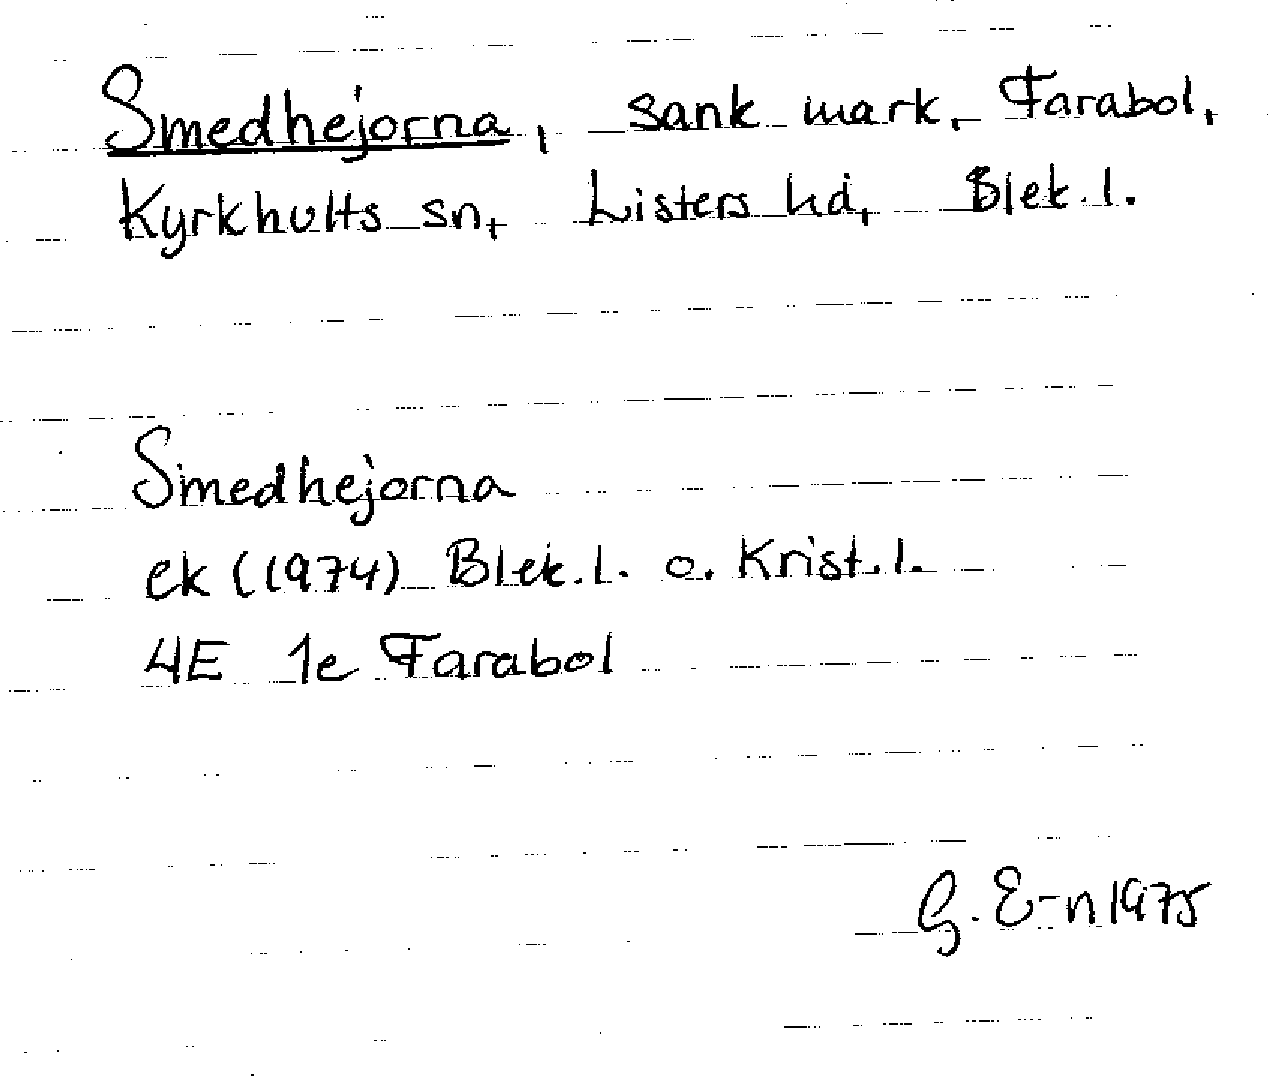 Smedhejorna, sank mark, Farabol,
Kyrkhults sn, Listers hd, Blek.l.
Smedhejorna
ek (1974) Blek.l. o. Krist.l.
4E 1e Farabol
G. E-n 1975